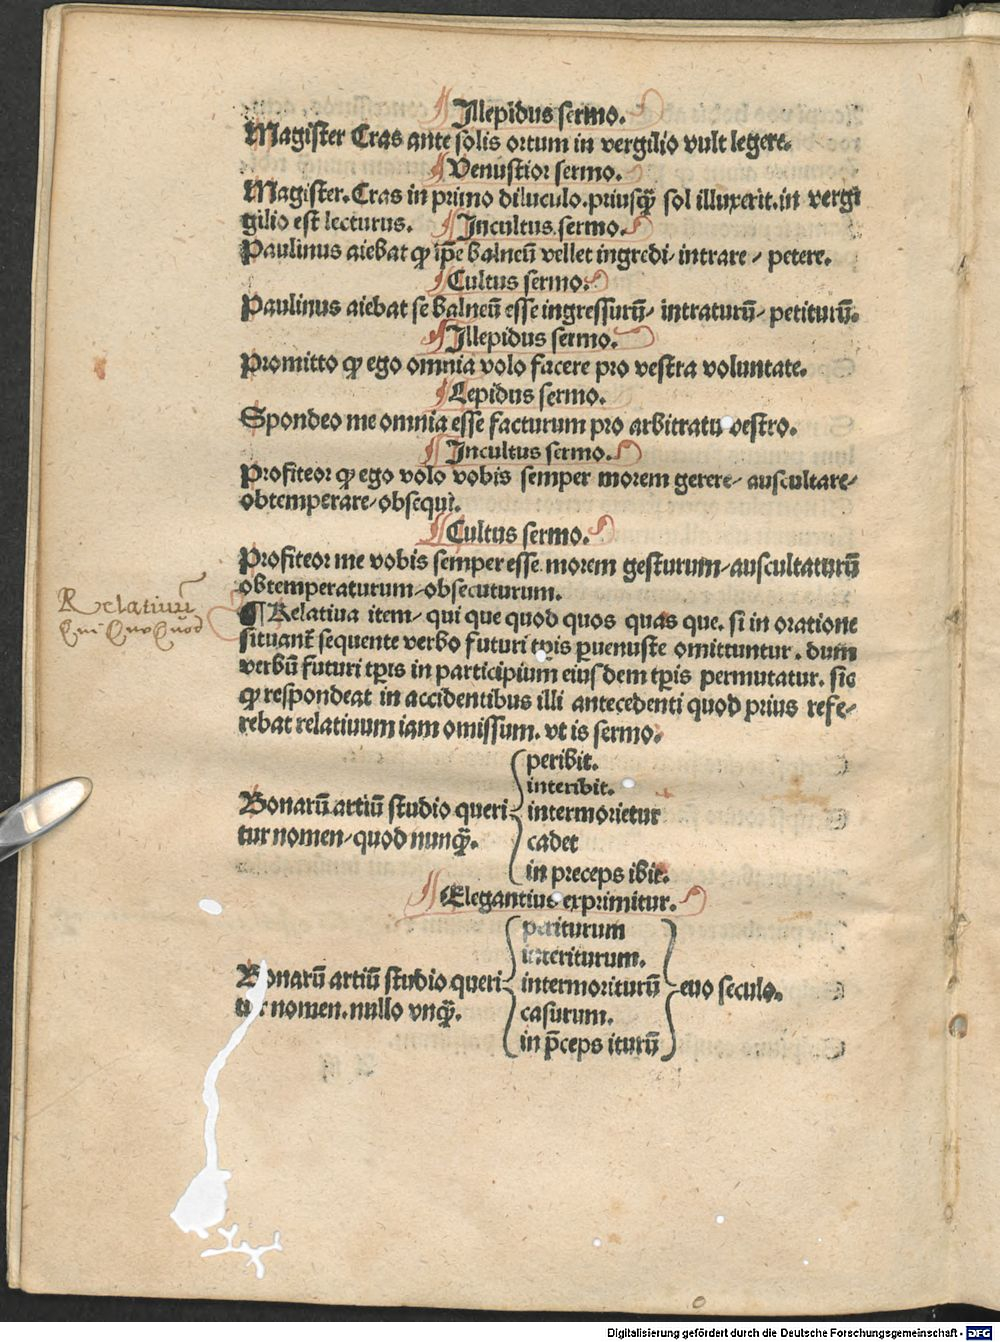 ¶Illepidus sermo.
Magister Cras ante solis ortum in vergilio vult legere.
¶Venustior sermo.
Magister. Cras in primo diluculo. priusq̄ sol illuxerit. in vergi
gilio est lecturus. ¶Incultus sermo.
Paulinus aiebat ꝙ ip̄e balneū vellet ingredi/ intrare / petere.
¶Cultus sermo.
Paulinus aiebat se balneū esse ingressurū/ intraturū/ petiturū.
¶Illepidus sermo.
Promitto ꝙ ego omnia volo facere pro vestra voluntate.
¶Lepidus sermo.
Spondeo me omnia esse facturum pro arbitratu vestro.
¶Incultus sermo.
Profiteor ꝙ ego volo vobis semper morem gerere/ auscultare/
obtemperare/ obsequi.
¶Cultus sermo.
Profiteor me vobis semper esse morem gesturum/ auscultaturū
obtemperaturum/ obsecuturum.
Relativum
Qui Que Quod
¶Relatiua item/ qui que quod quos quas que. si in oratione
situant᷑ sequente verbo futuri tꝑis ꝑuenuste omittuntur. dum
verbū futuri tꝑis in participium eiusdem tꝑis permutatur. sic
ꝙ respondeat in accidentibus illi antecedenti quod prius refe/
rebat relatiuum iam omissum. vt is sermo.
peribit.
interibit.
Bonarū artiū studio queri intermorietur
tur nomen/ quod nunq̄. cadet
in preceps ibit.
¶Elegantius exprimitur.
periturum
interiturum.
Bonarū artiū studio queri intermoriturū euo seculo.
tur nomen. nullo vnq̄. casurum.
in p̄ceps iturū
Digitalisierung gefördert durch die Deutsche Forschungsgemeinschaft - DFG